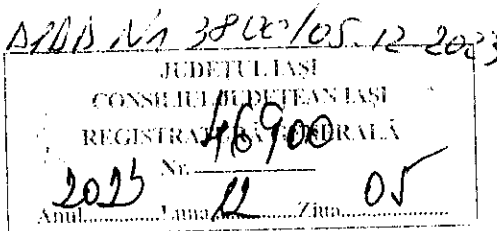 Nr 3800/05.12-2023
JUDEȚUL IAȘI
CONSILIUL JUDEȚEAN IAȘI
REGISTRATURA GENERALĂ
Nr. 46900
Anul 2023 Luna 12 Ziua 05